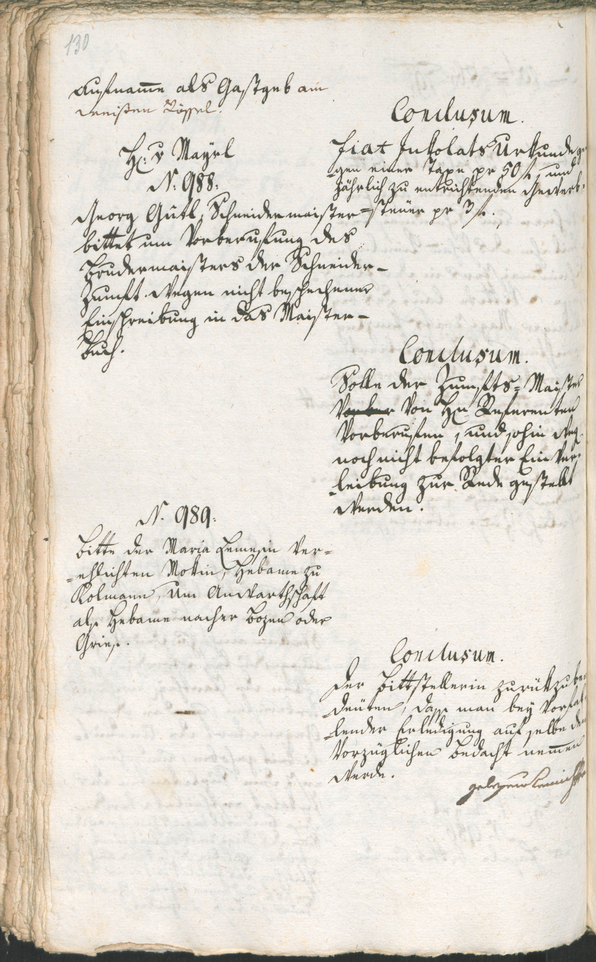 130
Aufnamme als Gastgeb am
weißen Rössel.
Conclusum.
fiat Inkolats Urkunde ge¬
gen einer Taxe pr 50 f., und
jährlich zu entrichtenden Gewerb¬
steuer pr 3 f.
H: v Mayrl
N. 988.
Georg Gütl, Schneidermaister
bittet um Vorberufung des
Brudermaisters der Schneider¬
Zunft wegen nicht beschechener
Einschreibung in das Maister¬
buch.
Conclusum.
Solle der Zunfts-Maister
von Hrn Referenten
Vorberufen, und sohin weg.
noch nicht befolgter Einver¬
leibung zur Rede gestellt
werden.
N. 989.
bitte der Maria ver¬
ehlichten Hebame zu
Kolmann, um Anwartschaft
als Hebame nacher Bozen oder
Gries.
Conclusum.
Der Bittstellerin zurükzube
deuten, dass man bey Vorfal
lender Erledigung auf selbe den
Vorzüglichen bedacht nemmen
werde.